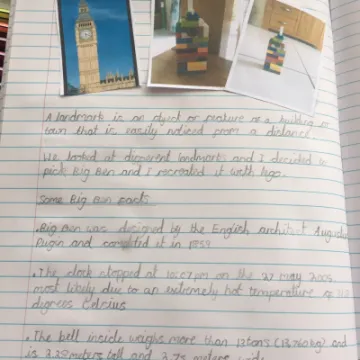 A landmark is an object or feature of a building or
town that is easily noticed from a distance.
We looked at different landmarks and I decided to
pick Big Ben and I recreated it with lego.
Some Big Ben facts
• Big Ben was designed by the English architect Augustus
Pugin and completed it in 1859
• The clock stopped at 10:07pm on the 27 May 2005
most likely due to an extremely hot temperature of
degrees Celsius
• The bell inside weighs more than 13 tons (13,760kg) and
is 3.28 meters tall and 2.75 meters wide